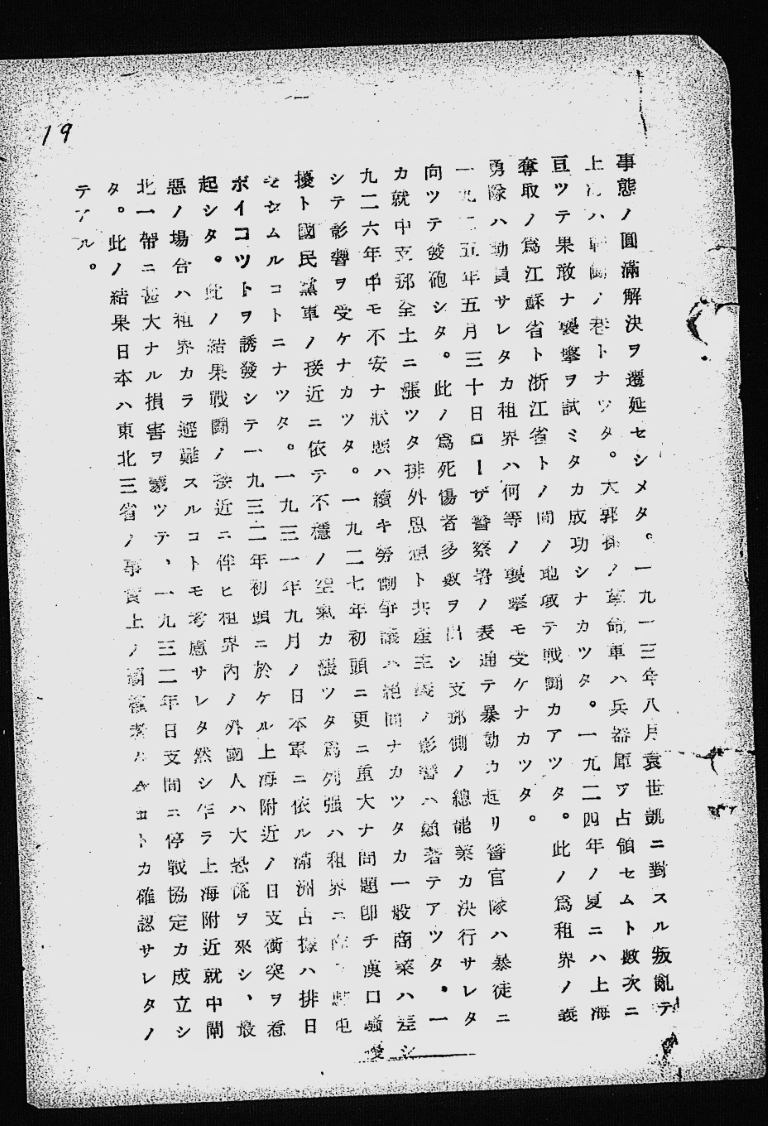 19
事態ノ圓滿解決ヲ遷延セシメタ。一九一三年八月袁世凱ニ對スル叛亂テ
上海ハ戰鬪ノ巷トナツタ。大郭 ノ革命軍ハ兵器庫ア占領セムト數次ニ
亘ツテ果敢ナ襲擊ヲ試ミタカ成功シナカツタ。一九二四年ノ夏ニハ上海
奪取ノ爲江蘇省ト浙江省トノ間ノ地域テ戰鬪カアツタ。此ノ爲租界ノ義
勇隊ハ動員サレタカ租界ハ何等ノ襲擊モ受ケナカツタ。
一九二五年五月三十日ローザ警察署ノ表通テ暴動カ起リ警官隊ハ暴徒ニ
向ツテ發砲シタ。此ノ爲死傷者多數ヲ出シ支那側ノ總罷業カ決行サレタ
カ就中支那全土ニ漲ツタ排外思想ト共產主義ノ影響ハ顯著テアツタ。一
九二六年中モ不安ナ狀態ハ續キ勞働爭議ハ絕間ナカツタカ一般商業ハ差
シテ影響ヲ受ケナカツタ。一九二七年初頭ニ更ニ重大ナ問題卽チ漢口騷
擾ト國民黨軍ノ接近ニ依テ不穩ノ空氣カ漲ツタ爲列强ハ租界ニ 屯
セシムルコトニナツタ。一九三一年九月ノ日本軍ニ依ル滿洲占據ハ排日
ボイコツトヲ誘發シテ一九三二年初頭ニ於ケル上海附近ノ日支衝突ヲ惹
起シタ。此ノ結果戰鬪ノ接近ニ伴ヒ租界內ノ外國人ハ大恐慌ヲ來シ、最
惡ノ場合ハ租界カラ避難スルコトモ考慮サレタ然シ乍ラ上海附近就中閘
北一帶ニ甚大ナル損害ヲ蒙ツテ、一九三二年日支間ニ停戰協定カ成立シ
タ。此ノ結果日本ハ東北三省ノ事實上ノ コトカ確認サレタノ
テアル。